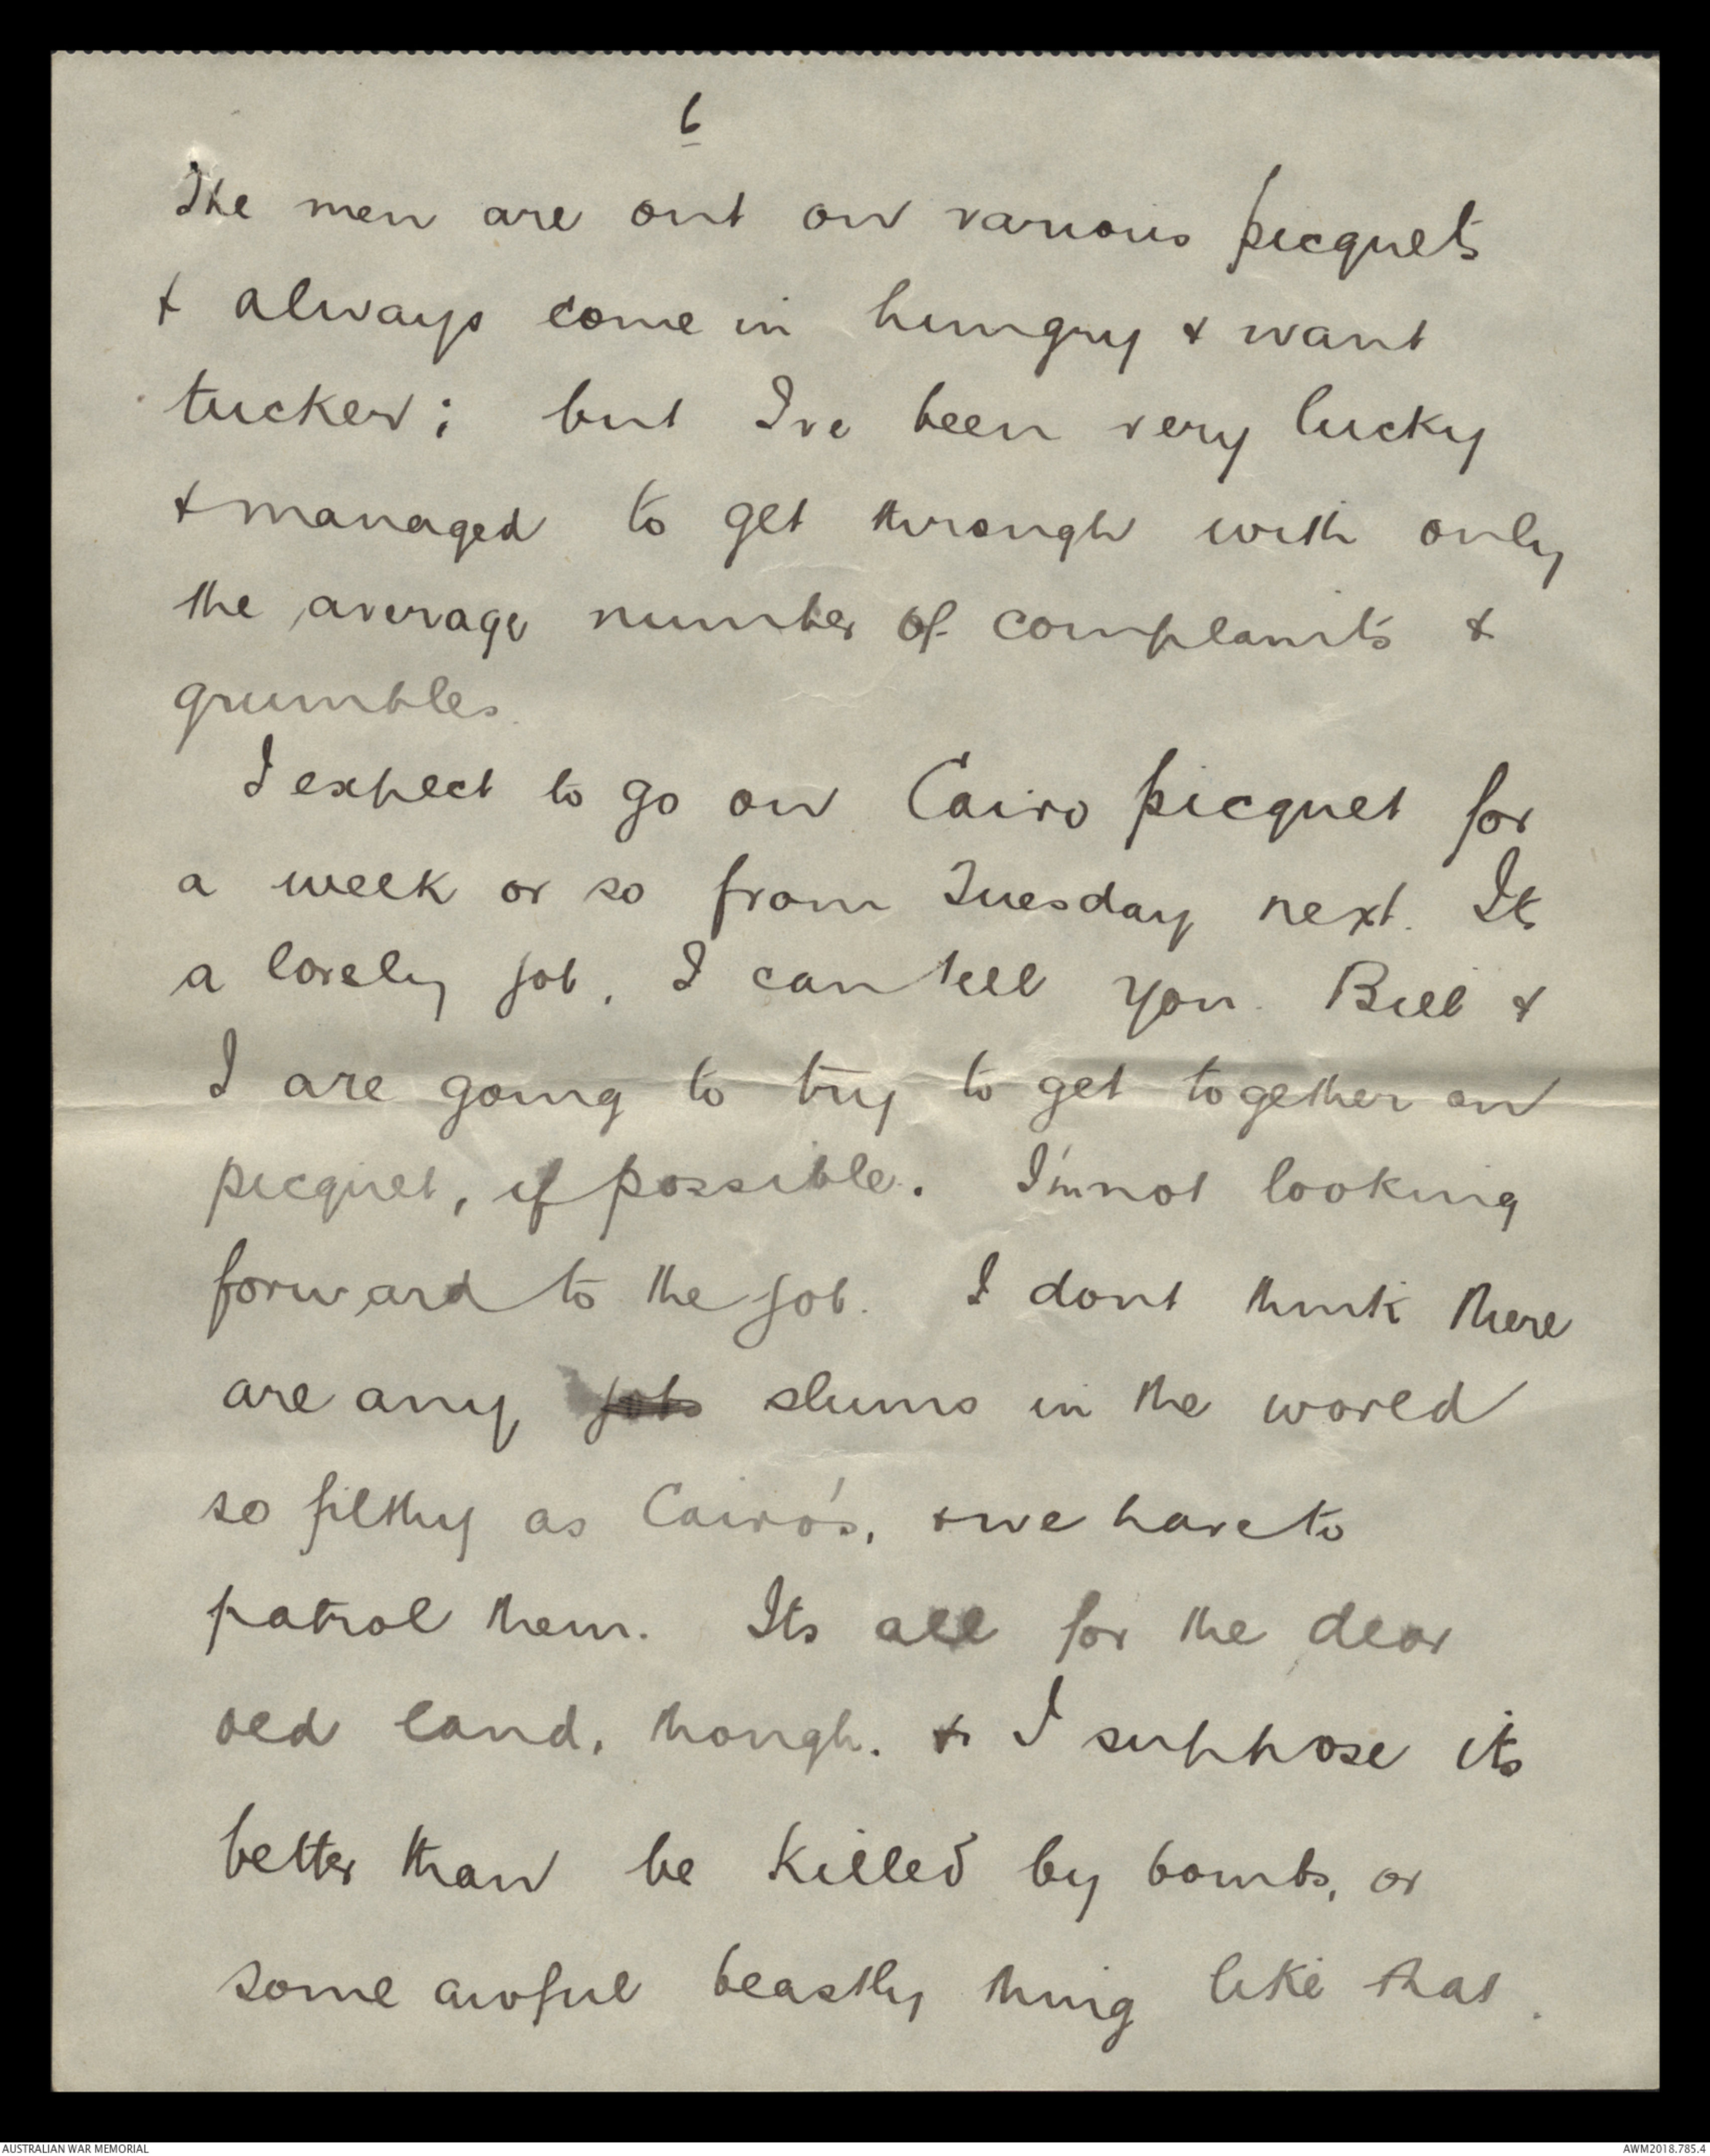 6
The men are out on various picquets
& always come in hungry & want
tucker; but I've been very lucky
& managed to get through with only
the average number of complaints &
grumbles.
I expect to go on Cairo picquet for
a week or so from Tuesday next. Its
a lovely job, I can tell you. Bill &
I are going to try to get together on
picquet, if possible. I'm not looking
forward to the job. I dont think there
are any jobs slums in the world
so filthy as Cairo's, & we have to
patrol them. Its all for the dear
old land, though. & I suppose its
better than be killed by bombs, or
some awful beastly thing like that.
AUSTRALIAN WAR MEMORIAL
AWM2018.785.4